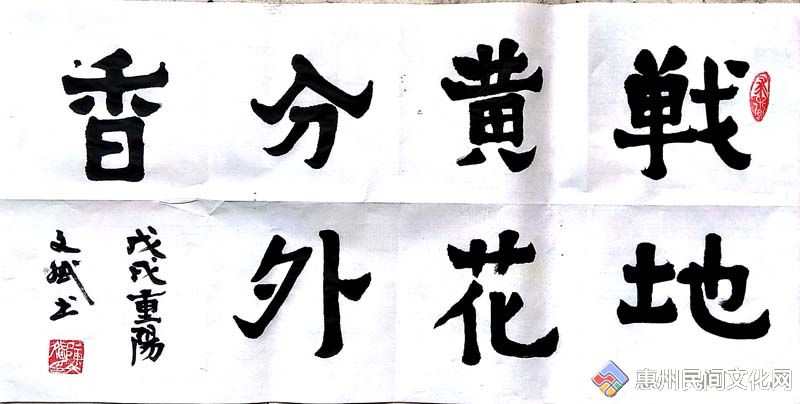 戦地
黄花
分外
香
戊戌重陽
文斌书
惠州民间文化网